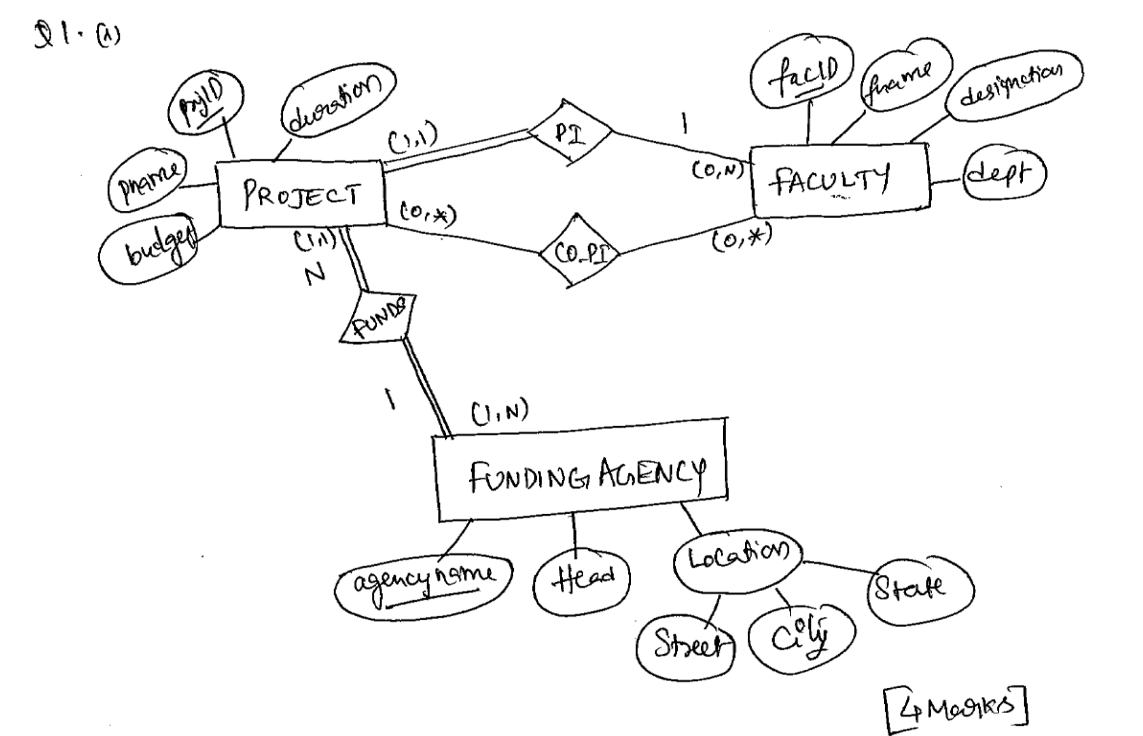 Q1. (i)
prjID
duration
pname
budget
PROJECT
(1,1)
PI
1
(0,N)
facID
fname
designation
FACULTY
dept
(0,*)
CO_PI
(0,*)
(1,1)
N
FUNDS
1
(1,N)
FUNDING AGENCY
agencyname
Head
Location
Street
City
State
[4 Marks]